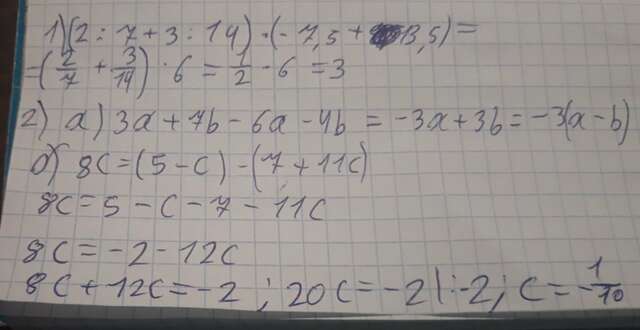 1) (2 : 7 + 3 : 14) · (-7,5 + 13,5) =
= (2/7 + 3/14) · 6 = 1/2 · 6 = 3
2) а) 3a + 7b - 6a - 4b = -3a + 3b = -3(a - b)
б) 8c = (5 - c) - (7 + 11c)
8c = 5 - c - 7 - 11c
8c = -2 - 12c
8c + 12c = -2 ; 20c = -2 | : -2 ; c = -1/10